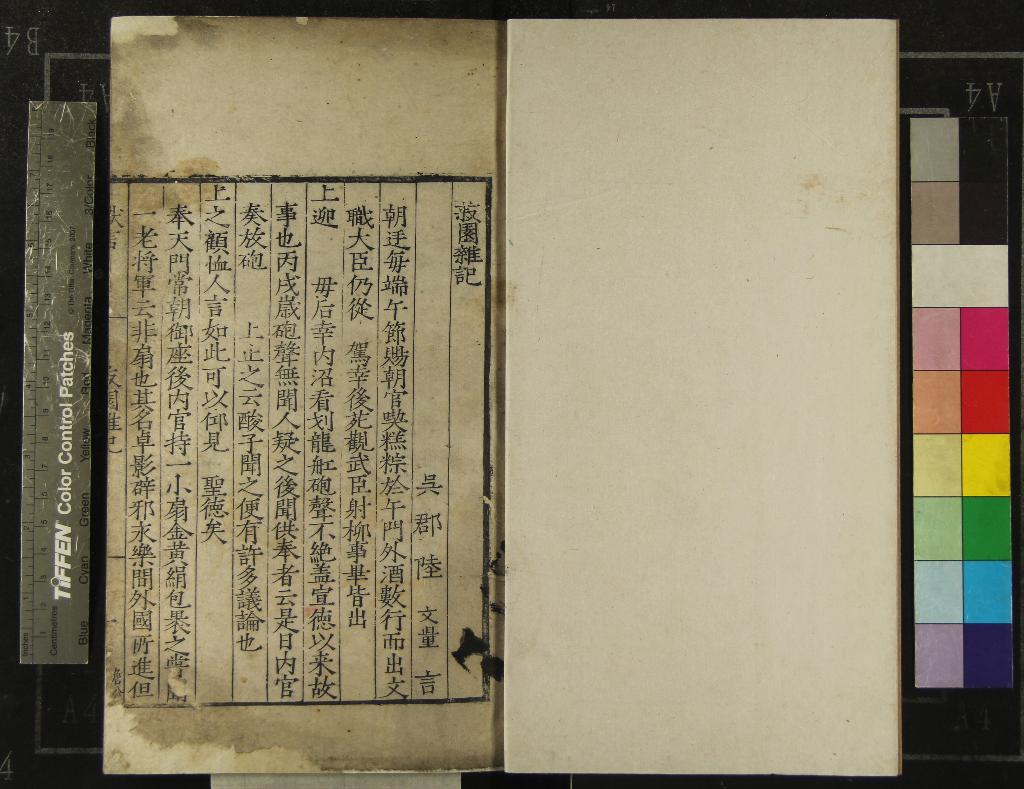 菽園雜記
吳郡陸 文量 言
朝廷每端午節賜朝官喫糕粽於午門外酒數行而出文
職大臣仍從 駕幸後苑觀武臣射柳事畢皆出
上迎 毋后幸内沼看划龍舡砲聲不絶盖宣德以来故
事也丙戌歳砲聲無聞人疑之後聞供奉者云是日内官
奏放砲 上止之云酸子聞之便有許多議論也
上之顧恤人言如此可以仰見 聖德矣
奉天門常朝御座後内官持一小扇金黄絹包裹之嘗
一老将軍云非扇也其名卓影辟邪永樂間外國所進但
TIFFEN Color Control Patches
© The Tiffen Company, 2007
Inches
Centimetres
Blue
Cyan
Green
Yellow
Red
Magenta
White
3/Color
Black
B4
A4